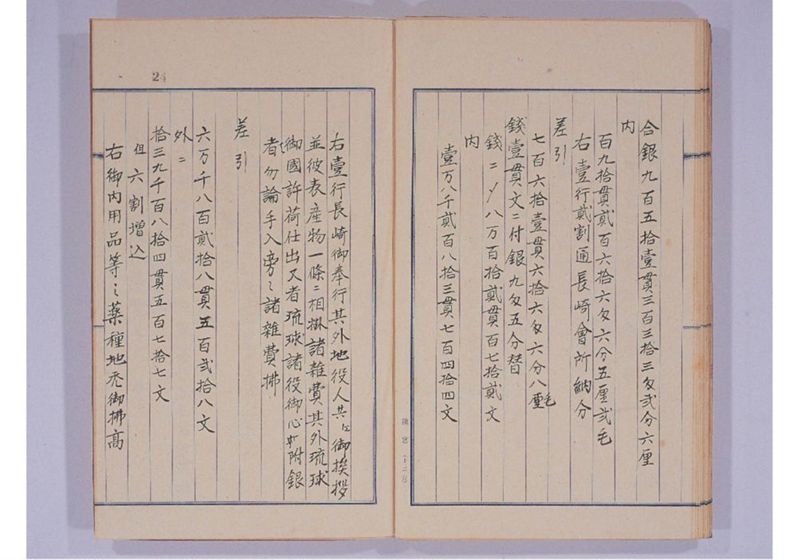 合銀九百五拾壹貫三百三拾三匁弐分六厘
内
百九拾貫貳百六拾六匁六分五厘弐毛
右壹行貳割通長崎會所納分
差引
七百六拾壹貫六拾六匁六分八毛
錢壹貫文ニ付銀九匁五分替
錢ニ〆八万百拾貳貫百七拾貳文
内
壹万八千貳百八拾三貫七百四拾四文
右壹行長崎御奉行其外地役人共江御挨拶
並彼表産物一條ニ相掛諸雜費其外琉球
御國許荷仕出又者琉球諸役御心付銀
者勿論手入旁之諸雜費拂
差引
六万千八百貳拾八貫五百弐拾八文
外ニ
拾三九千百八拾四貫五百七拾七文
但六割増込
右御内用品等之藥種地売御拂高
2